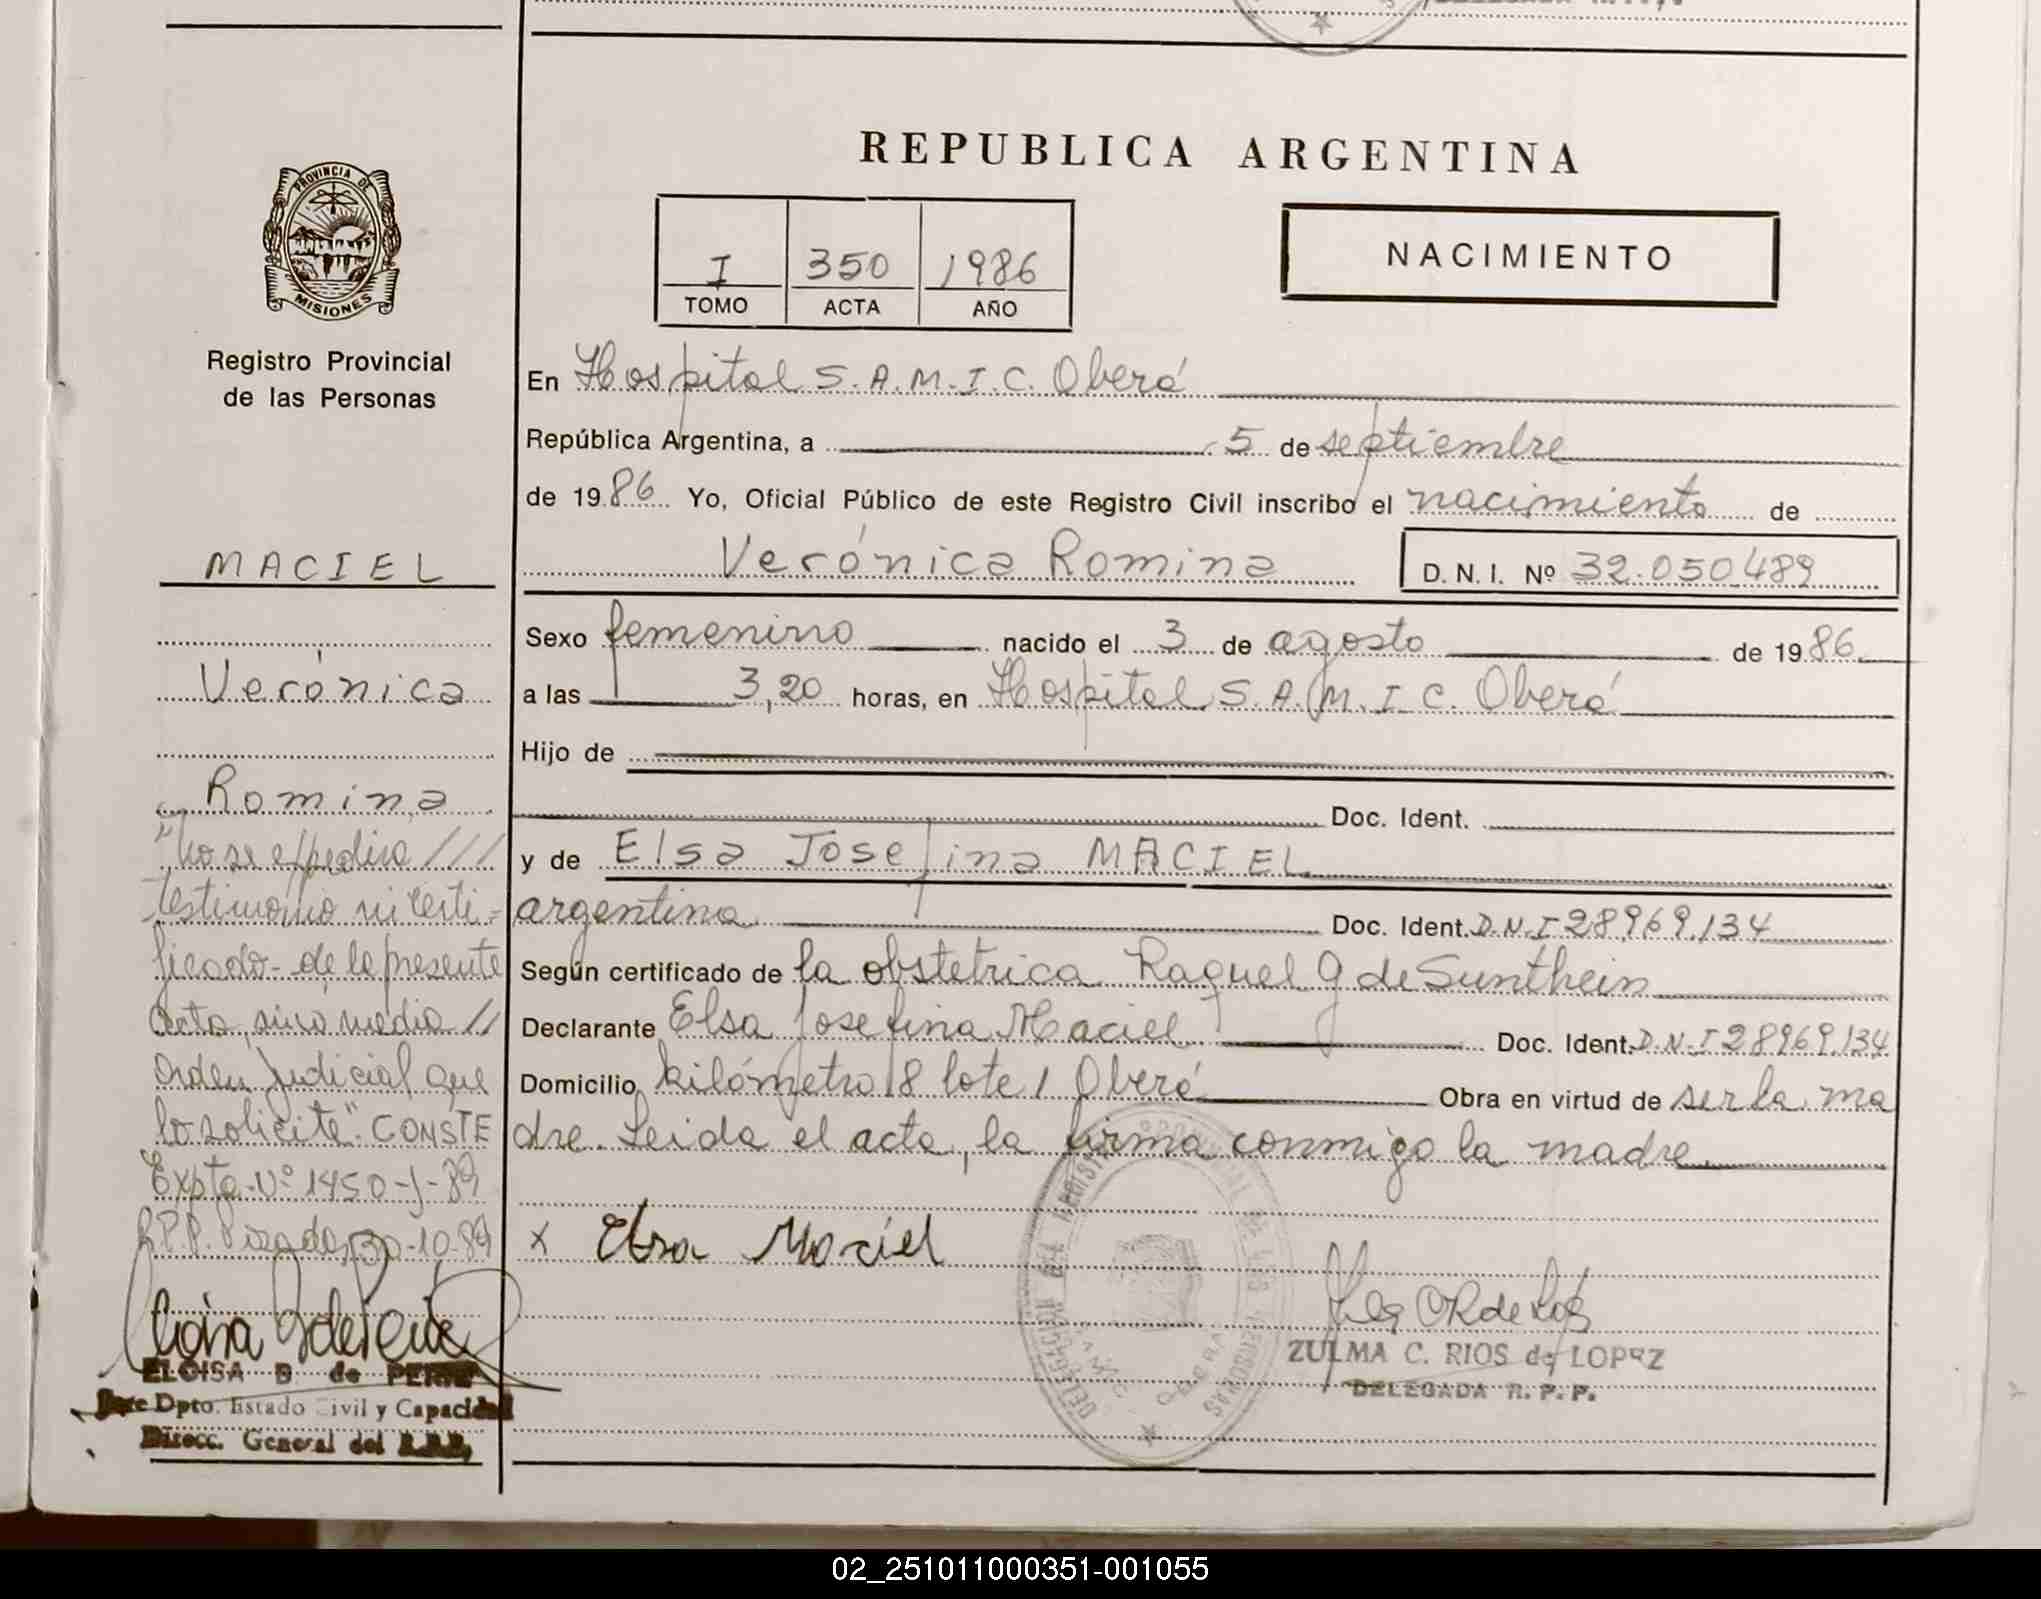 REPUBLICA ARGENTINA
PROVINCIA DE
MISIONES
Registro Provincial
de las Personas
I 350 1986
TOMO ACTA AÑO
NACIMIENTO
En Hospital S.A.M.I.C. Oberá
República Argentina, a 5 de septiembre
de 1986 Yo, Oficial Público de este Registro Civil inscribo el nacimiento de
Verónica Romina D.N.I. Nº 32.050489
Sexo femenino nacido el 3 de agosto de 1986
a las 3,20 horas, en Hospital S.A.M.I.C. Oberá
Hijo de
Doc. Ident.
y de Elsa Josefina MACIEL
argentina Doc. Ident. D.N.I 28.969.134
Según certificado de la obstetrica Raquel G de Sunthein
Declarante Elsa Josefina Maciel Doc. Ident. D.N.I 28969.134
Domicilio kilómetro 8 lote 1 Oberá Obra en virtud de ser la ma
dre. Leida el acta, la firma conmigo la madre
x Elsa Maciel
ZULMA C. RIOS de LOPEZ
DELEGADA R.P.P.
MACIEL
Verónica
Romina
"No se expedira ///
testimonio ni certi=
ficado de la presente
acta, sino medio //
orden judicial que
lo solicite". CONSTE
Expte. Nº 1450-J-89
R.P.P. Posadas, 30-10-89
ELOISA B de
Dpto. Estado Civil y Capacidad
Direcc. General del R.P.P.
02_251011000351-001055